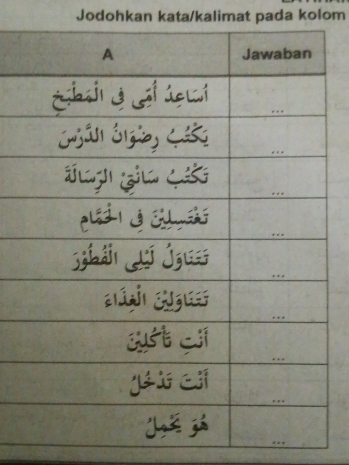 Jodohkan kata/kalimat pada kolom
A Jawaban
اُسَاعِدُ اُمِّى فِى الْمَطْبَخِ ...
يَكْتُبُ رِضْوَانُ الدَّرْسَ ...
تَكْتُبُ سَانْتِيْ الرِّسَالَةَ ...
تَغْتَسِلِيْنَ فِى الْحَمَّامِ ...
تَتَنَاوَلُ لَيْلِى الْفُطُوْرَ ...
تَتَنَاوَلِيْنَ الْغِذَاءَ ...
أَنْتِ تَأْكُلِيْنَ ...
أَنْتَ تَدْخُلُ ...
هُوَ يَحْمِلُ ...